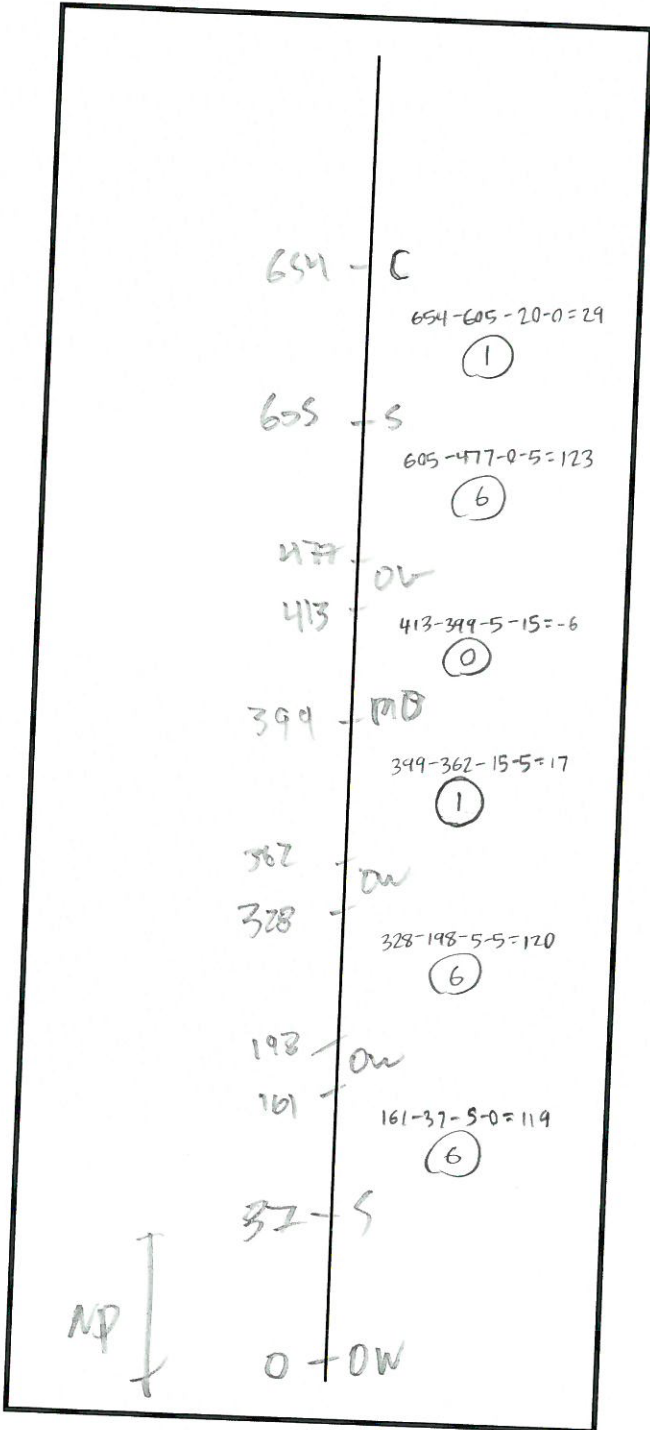 654 - C
654-605-20-0=29
1
605 - S
605-477-0-5=123
6
477 -
OW
413 -
413-399-5-15=-6
0
399 - MB
399-362-15-5=17
1
362 -
OW
328 -
328-198-5-5=120
6
198 -
OW
161 -
161-37-5-0=119
6
37 - S
NP
0 - OW